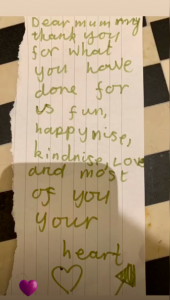 Dear mummy
thank you
for what
you have
done for
us fun,
happynise,
kindnise, Love
and most
of you
your
heart